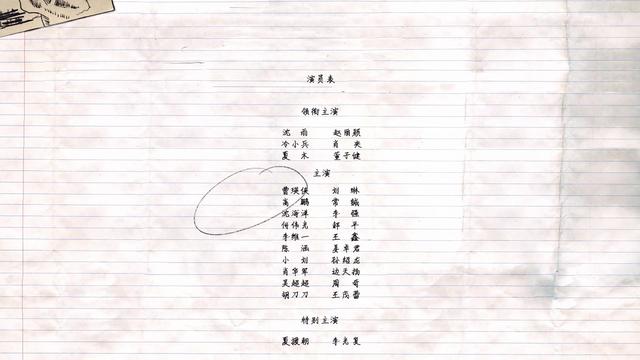 演员表
领衔主演
沈雨 赵丽颖
冷小兵 肖央
夏木 董子健
主演
曹瑛俊 刘琳
高鹏 常铖
沈海洋 李强
伟光 平
李维一 王鑫
陈涵 姜卓君
小刘 孙绍龙
肖华军 边天扬
吴超超 周奇
胡刀刀 王茂蕾
特别主演
夏援朝 李光复